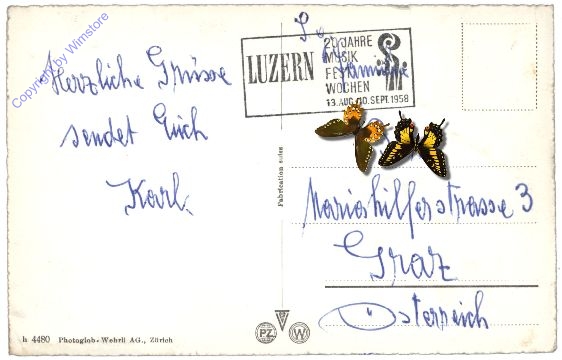 Copyright by Wimstore
Herzliche Grüsse
sendet Euch
Karl.
LUZERN
20 JAHRE
MUSIK
FEST
WOCHEN
13. AUG. 10. SEPT. 1958
Fabrication suisse
Mariahilferstrasse 3
Graz
Österreich
h 4480 Photoglob-Wehrli AG., Zürich
PZ W